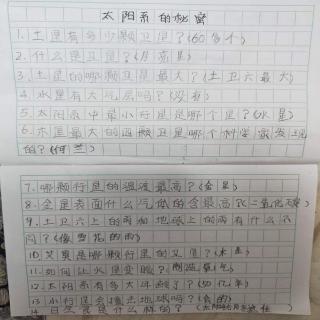 太阳系的秘密
1.土星有多少颗卫星?(60多个)
2.什么是卫星?(月亮是)
3.土星的哪颗卫星最大?(土卫六最大)
4.水星有大气层吗?(没有)
5.太阳系中最小行星是哪个星?(水星)
6.木星最大的四颗卫星是哪个科学家发现
的?(
7.哪颗行星的温度最高?(金星)
8.金星表面什么气体的含最高?(二氧化碳)
9.土卫六上的雨和地球上的雨有什么不
同?(像雪花的雨)
10.艾奥是哪颗行星的卫星?(木星)
11.如何让火星变暖?(制造氧气)
12.太阳系有多大年龄了?(50亿年)
13.小行星会撞击地球吗?(会的)
14.日食是什么样的?(